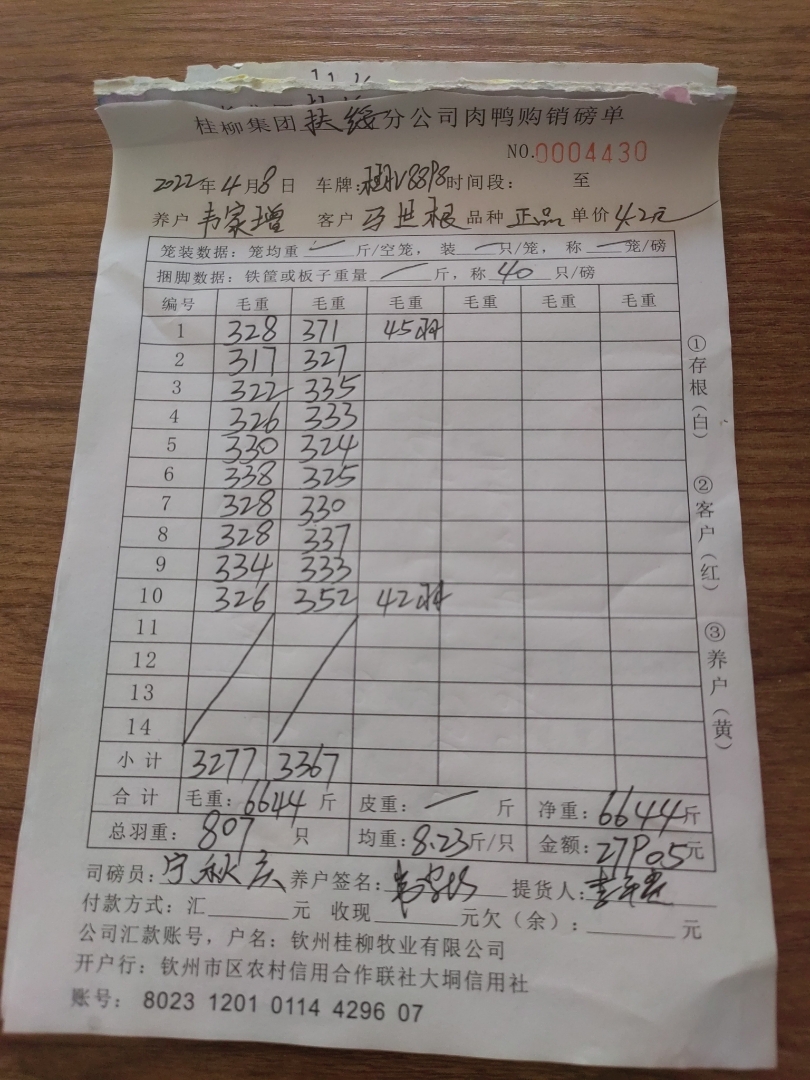 桂柳集团扶绥分公司肉鸭购销磅单
NO.0004430
2022年4月8日 车牌: 时间段: 至
养户 韦家增 客户 马世根 品种 正品 单价 4.2元
笼装数据:笼均重 斤/空笼,装 只/笼,称 笼/磅
捆脚数据:铁筐或板子重量 斤,称 40 只/磅
编号 毛重 毛重 毛重 毛重 毛重 毛重
1 328 371 45羽
2 317 327
3 322 335
4 326 333
5 330 324
6 338 325
7 328 330
8 328 337
9 334 333
10 326 352 42羽
11
12
13
14
小计 3277 3367
合计 毛重:6644斤 皮重: 斤 净重:6644斤
总羽重:807只 均重:8.23斤/只 金额:27905元
司磅员:宁秋庆 养户签名: 提货人:
付款方式:汇 元 收现 元欠(余): 元
公司汇款账号,户名:钦州桂柳牧业有限公司
开户行:钦州市区农村信用合作联社大垌信用社
账号: 8023 1201 0114 4296 07
①存根(白)
②客户(红)
③养户(黄)